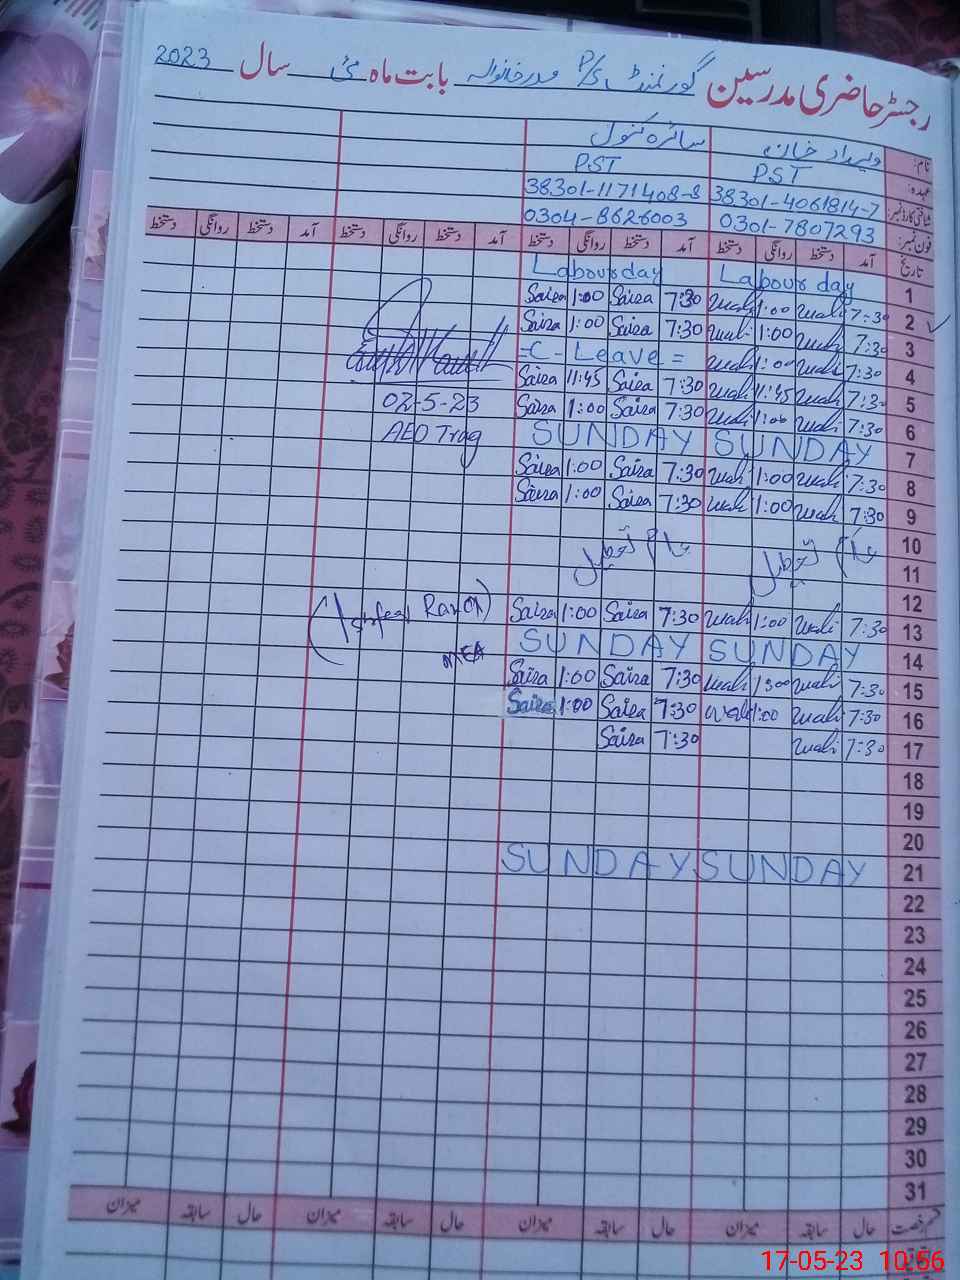 رجسٹر حاضری مدرسین گورنمنٹ P/S صدر خانوالہ بابت ماہ مئی سال 2023
نام: ولیداد خان سائرہ کنول
عہدہ: PST PST
شناختی کارڈ نمبر: 38301-4061814-7 38301-1171408-8
فون نمبر: 0301-7807293 0304-8626003
تاریخ آمد دستخط روانگی دستخط آمد دستخط روانگی دستخط آمد دستخط روانگی دستخط آمد دستخط روانگی دستخط
1 Labour day Labour day
2 7:30 wali 1:00 wali 7:30 Saira 1:00 Saira
3 7:30 wali 1:00 wali 7:30 Saira 1:00 Saira
4 7:30 wali 1:00 wali = C - Leave =
5 7:30 wali 11:45 wali 7:30 Saira 11:45 Saira
6 7:30 wali 1:00 wali 7:30 Saira 1:00 Saira
02-5-23
AEO Trag
7 SUNDAY SUNDAY
8 7:30 wali 1:00 wali 7:30 Saira 1:00 Saira
9 7:30 wali 1:00 wali 7:30 Saira 1:00 Saira
10
11 عام تعطیل عام تعطیل
12
13 7:30 wali 1:00 wali 7:30 Saira 1:00 Saira
MEA
14 SUNDAY SUNDAY
15 7:30 wali 1:00 wali 7:30 Saira 1:00 Saira
16 7:30 wali 1:00 wali 7:30 Saira 1:00 Saira
17 7:30 wali 7:30 Saira
18
19
20
21 SUNDAY SUNDAY
22
23
24
25
26
27
28
29
30
31
قسم رخصت حال سابقہ میزان حال سابقہ میزان حال سابقہ میزان حال سابقہ میزان
17-05-23 10:56